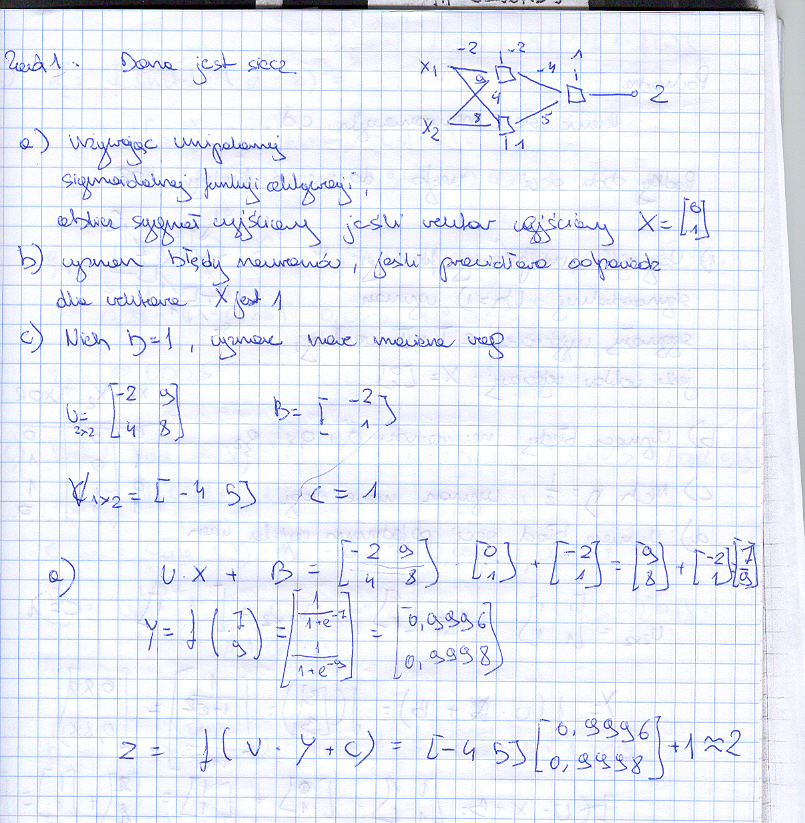 Zad 1. Dana jest sieć
-2 -2 -4 1
X1 9
4 2
X2 8 5
1
a) używając unipolarnej
sigmoidalnej funkcji aktywacji,
oblicz sygnał wyjściowy jeśli wektor wejściowy X = [0 1]
b) wyznacz błędy neuronów, jeśli prawidłowa odpowiedź
dla wektora X jest 1
c) Niech η=1, wyznacz nowe macierze wag
U= 2x2 [-2 9 4 8] B = [-2 1]
V1x2 = [-4 5] C = 1
a) U·X + B = [-2 9 4 8] · [0 1] + [-2 1] = [9 8] + [-2 1] = [7 9]
Y = f(7 9) = [1/(1+e^-7) 1/(1+e^-9)] = [0,9996 0,9998]
z = f(V·Y+C) = [-4 5] [0,9996 0,9998] +1 ≈ 2